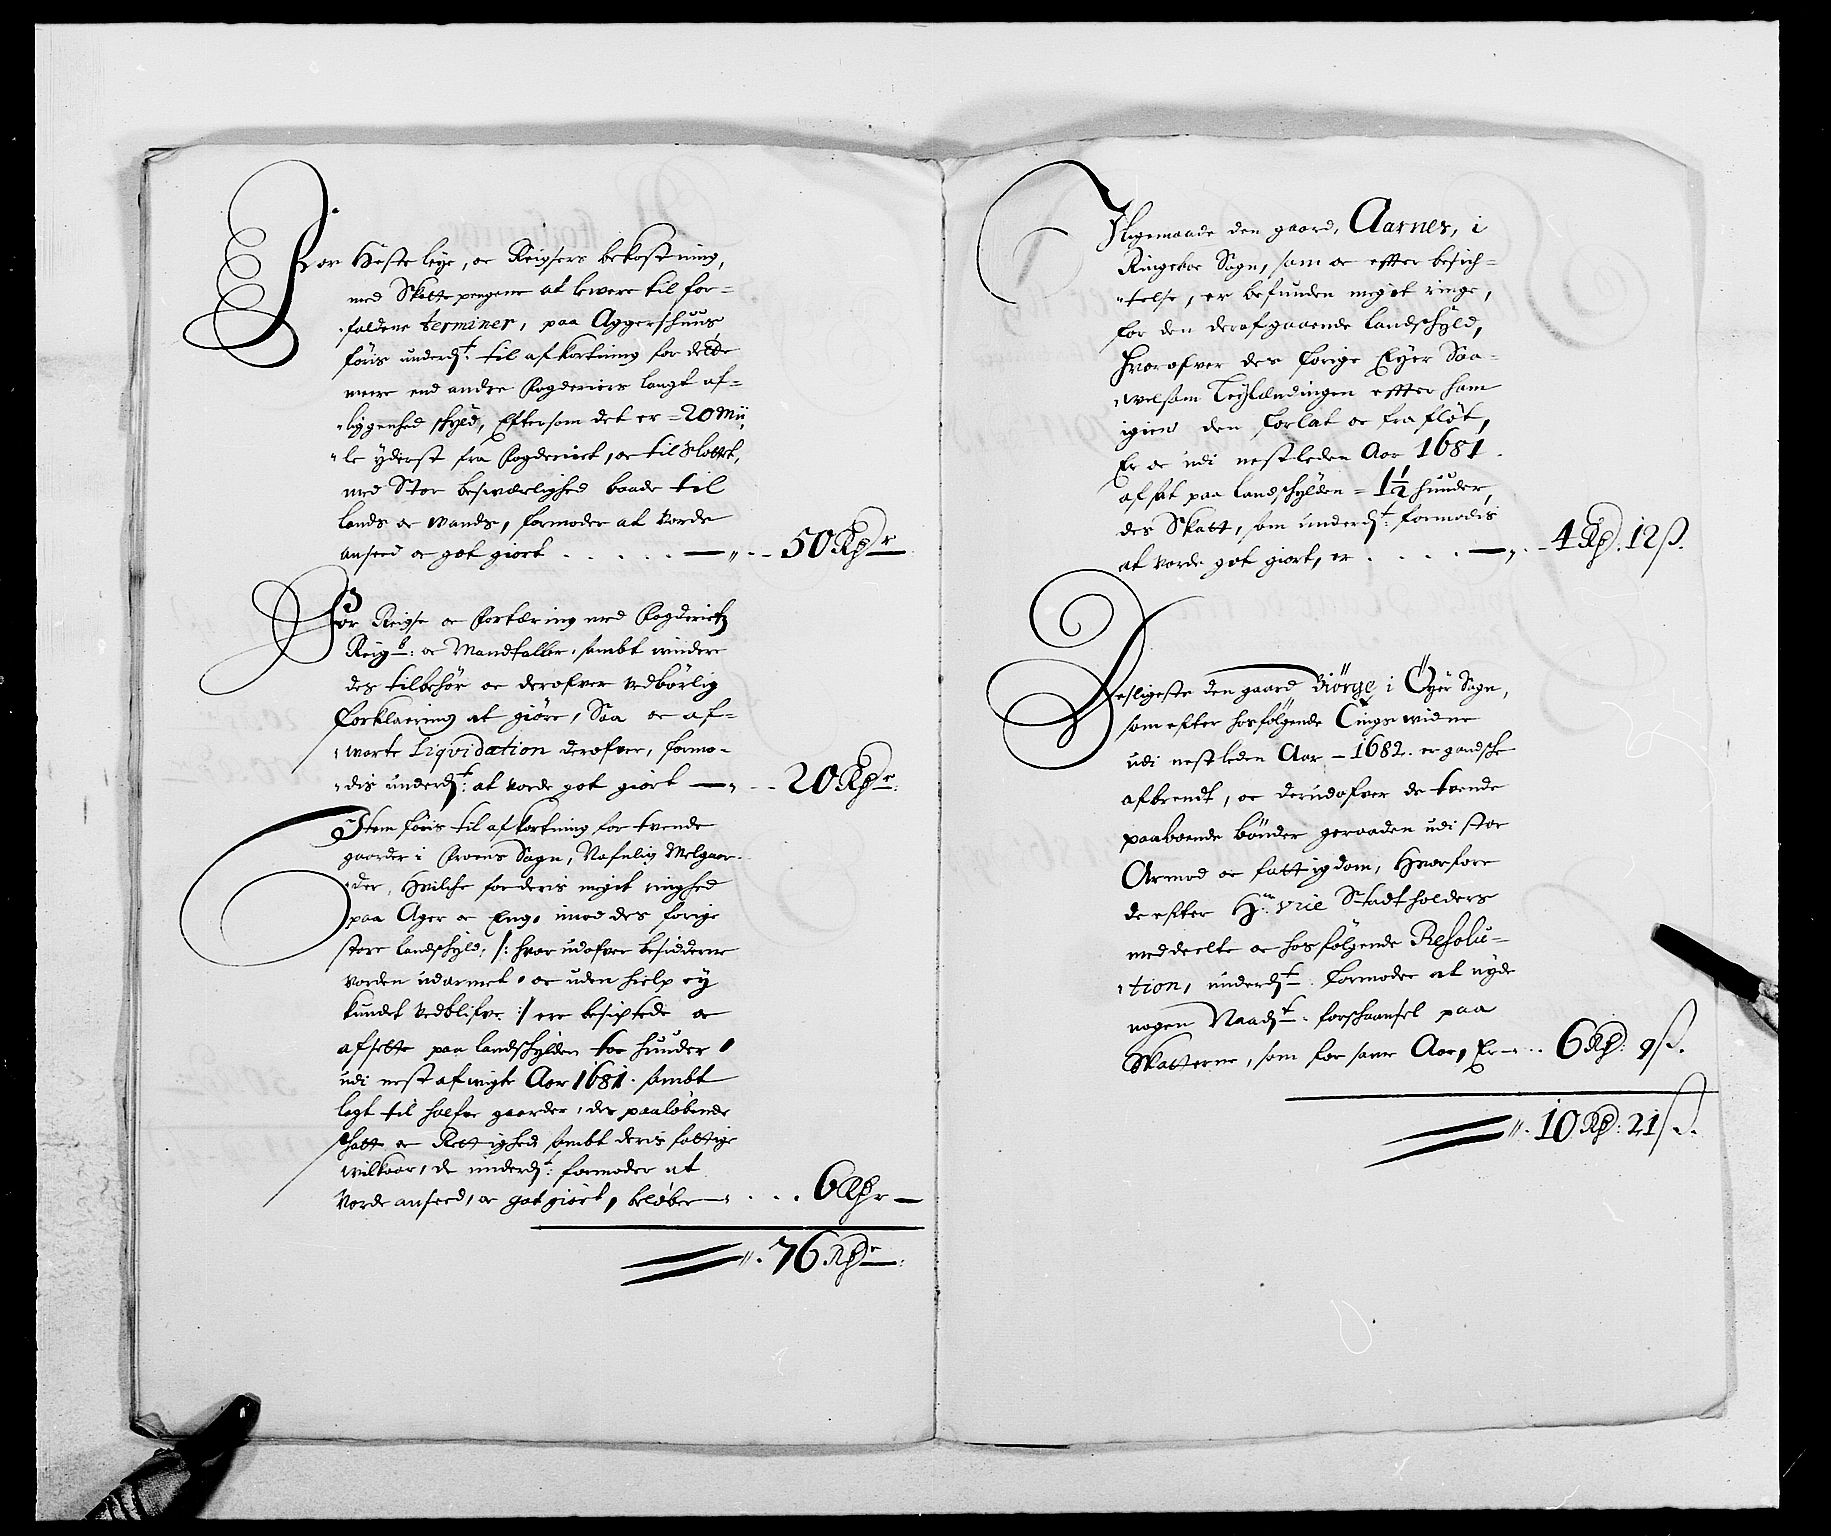 For Heste leye, oc Reigsers bekostning,
med Skatte pengene at levere til for=
faldene terminer, paa Aggershuus
føris underd:t til afkortning for dette
mere end andre Fogderiers langt af=
liggenhed skyld, Eftersom det er = 20 Mii
le yderst fra Fogderiet, oc til Slottet,
med Stor besværlighed baade til
Lands oc Vands, formoder at vorde
anseed oc got giort . . . . . — „ - - 50 Rdr
For Reigse oc Fortæring med Fogderietz
Reig:b: oc Mandtaller, sambt videre
des tilbehør oc derofver vedbørlig
forklaering at giøre, Saa oc af=
warte Liqvidation derofver, formo=
dis underd:t at vorde got giort — „ - - 20 Rdr:
Item føris til afkortning for tvende
gaarder i Froens Sogn, Nafnlig Melgaar=
der, Hvilche formedelst ringhed
paa Ager oc Eng, imod des forige
store landschyld, /: hvorudofver besidderne
vorden udarmet, oc uden hielp ey
kundet vedblifve :/ ere besictede oc
afsette paa landschylden toe hunder,
udi nest afvigte Aar 1681. sambt
lagt til halfve gaarder, des paaløbende
skatt oc Rettighed, sambt deris fattige
vilkaar, de underd:t: formoder at
vorde anseed, oc got giort, beløber — „ . . . 6 Rdr —
„ . 76 Rdr:
Iligemaade den gaard, Aarnes, i
Ringeboe Sogn, som oc efter besich=
telse, er befunden meget ringe,
for den derafgaaende landschyld,
Hvorofver des forige Eyer Saa=
velsom Leylændingen efter ham
igien den forlat oc fra fløt,
Er oc udi nestleden Aar 1681.
afsat paa landschylden = 1½ hunder,
des Skatt, som underd:t: formodis
at vorde got giort, er . . . . — „ . - 4 Rd. 12 ß.
Desligeste den gaard Biørge i Öyer Sogn,
som efter hosfølgende Tings widne
udi nestleden Aar - 1682. er gandsche
afbrendt, oc derudofver de tvende
paaboende bönder geraaden udi stor
Armod oc fattigdom, Hvorfore
de efter H:r Vice Stadtholders
meddeelte oc hosfølgende Resolu=
tion, underd:t. formoder at nyde
nogen Naads:t. forschaansel paa
Skatterne, som for samme Aar, Er - „ . . 6 Rd: 9 ß.
„ . 10 Rd: 21 ß.